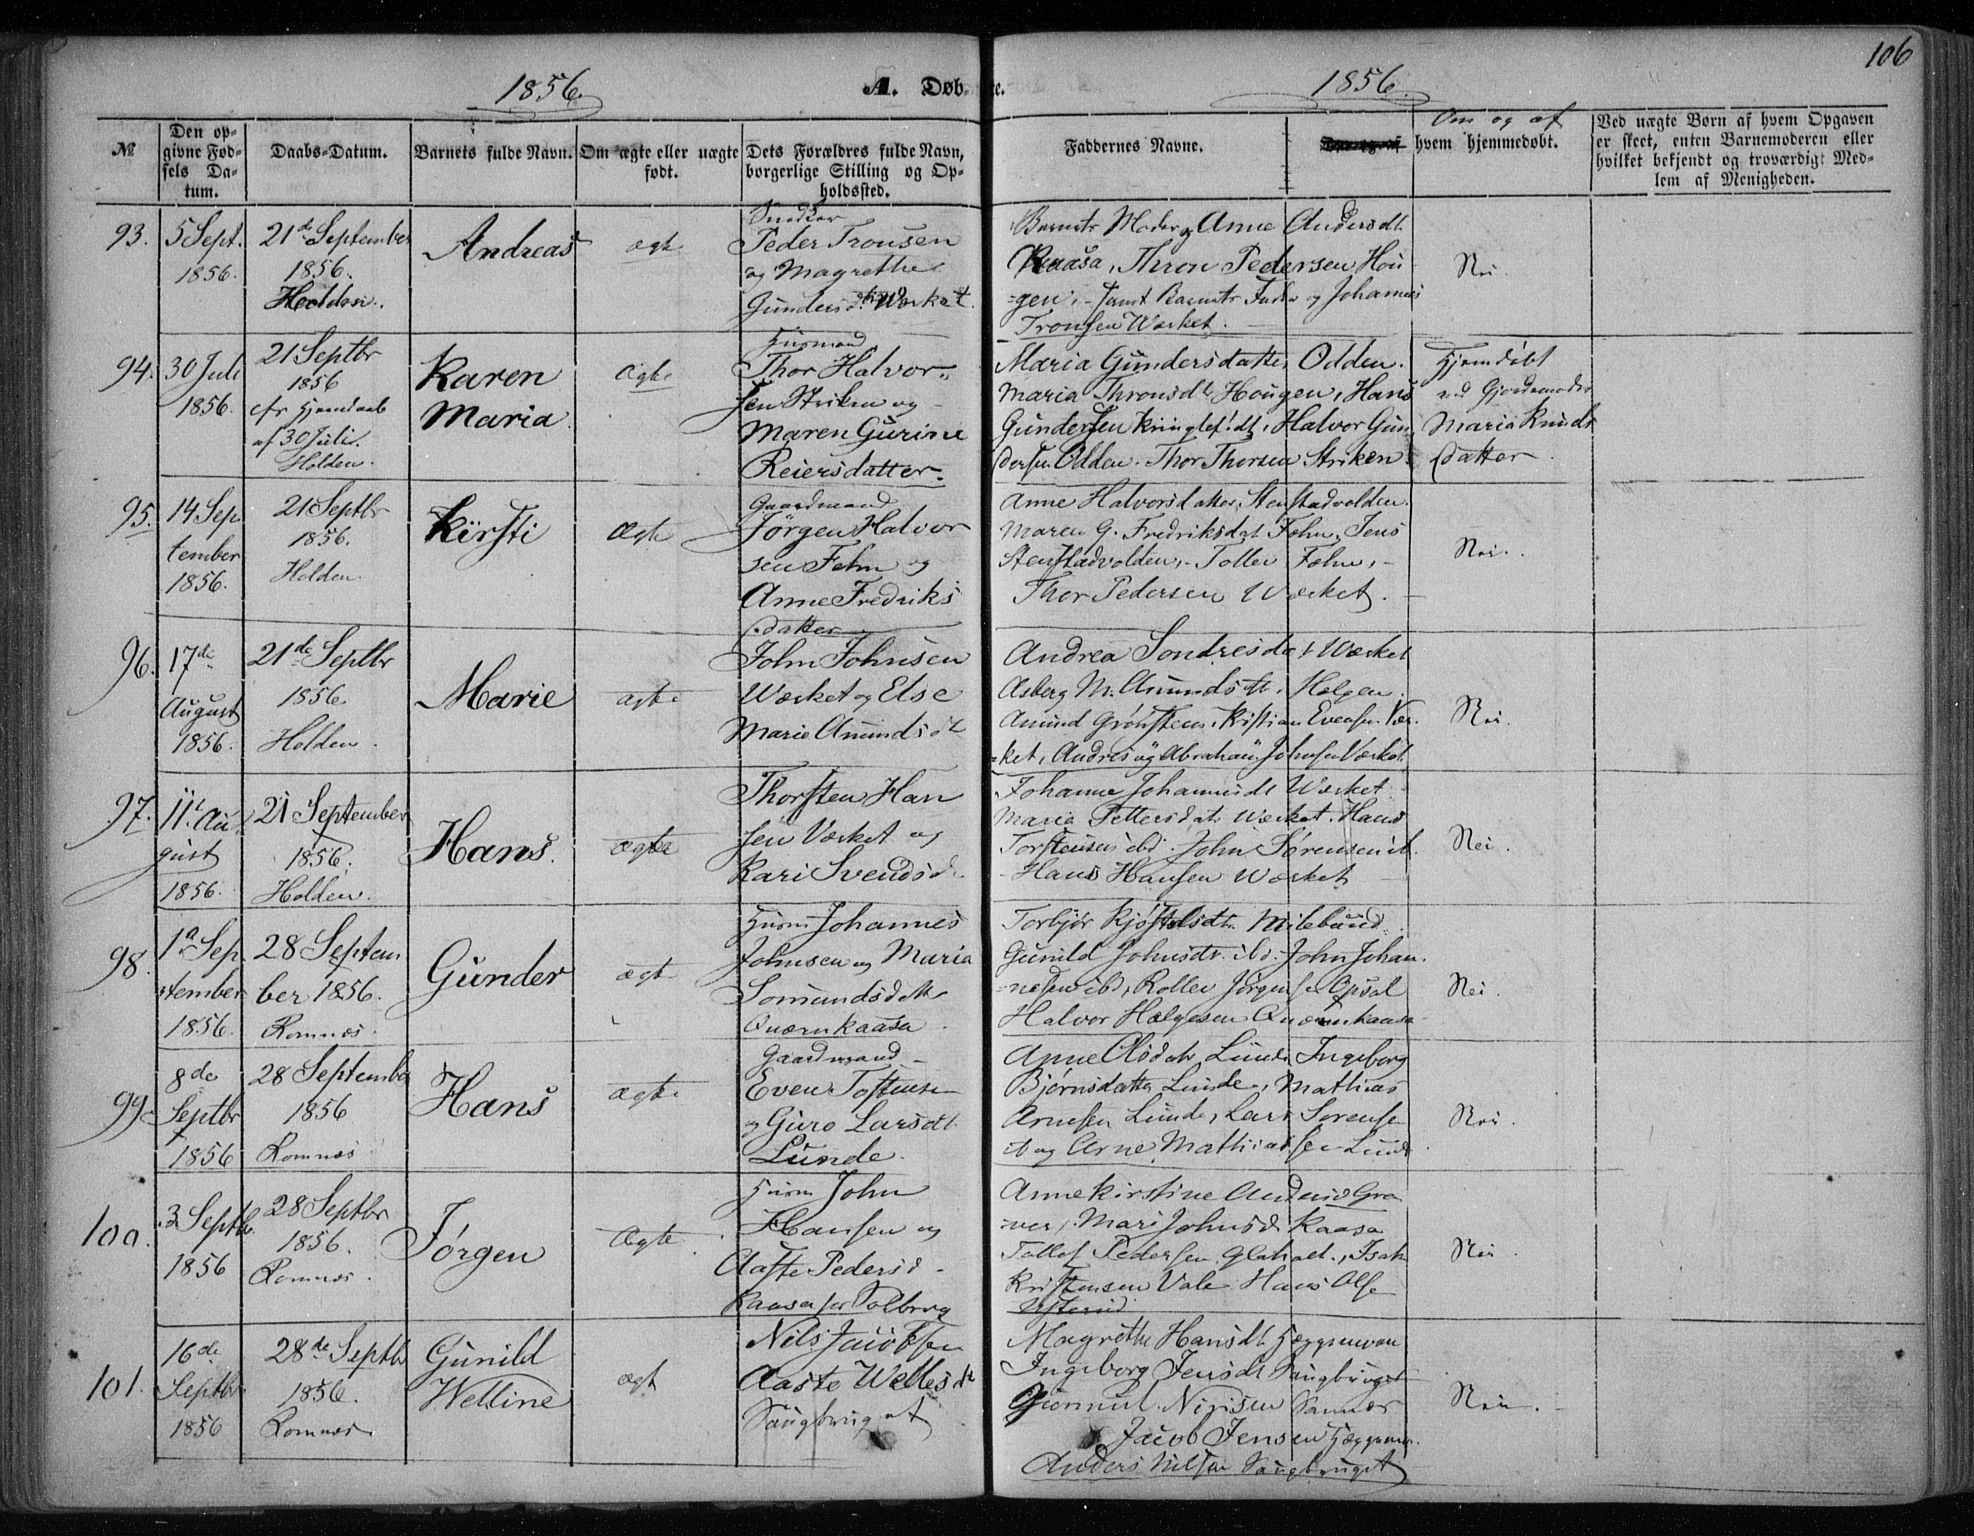 106
1856.
A. Døb
te.
1856.
№
Den op-
givne Fød-
sels Da-
tum.
Daabs-Datum.
Barnets fulde Navn.
Om ægte eller uægte
født.
Dets Forældres fulde Navn,
borgerlige Stilling og Op-
holdssted.
Faddernes Navne.
Om og af
hvem hjemmedøbt.
Ved uægte Børn af hvem Opgaven
er skeet, enten Barnemoderen eller
hvilket bekjendt og troværdigt Med-
lem af Menigheden.
93.
5 Sept.
1856.
21de September
1856.
Holden.
Andreas
ægte
Peder Tronsen
og Magrethe
Gundersdt. Værket.
Barnets Moder og Anne Andersdt.
Kaasa, Thron Pedersen Hou-
gen, samt Barnets Fader og Johannes
Tronsen Værket.
Nei.
94.
30 Juli
1856.
21 Septbr
1856
efr Hjemdaab
af 30 Juli.
Holden.
Karen
Maria
Ægte
Husmand
Thor Halvor-
sen Striken og
Maren Gurine
Reiersdatter.
Maria Gundersdatter Odden.
Maria Thronsdt. Hougen, Hans
Gundersen, Halvor Gun-
dersen Odden. Thor Thorsen Striken.
Hjemdøbt
ved Gjordemoder
Maria Knuds
datter.
95.
14 Sep
tember
1856.
21 Septbr
1856.
Holden.
Kirsti
Ægte
Gaardmand
Jørgen Halvor
sen Fehn og
Anne Fredriks
datter
Anne Halvorsdatter Stenstadvolden.
Maren G. Fredriksdat Fehn, Jens
Stenstadvolden, Tollev Fehn,
Thor Pedersen Værket.
Nei.
96.
17de
August
1856.
21de Septbr
1856.
Holden.
Marie
ægte
John Johnsen
Værket og Else
Marie Amundsdt
Andrea Sondresdat Værket
Asberg M. Amundsdt. Helgen.
Amund Grønsteen, Kristian Evensen Vær-
ket, Andreas og Abraham Johnsen Værket
Nei.
97.
11t. Au
gust
1856.
21 September
1856.
Holden.
Hans.
ægte
Thorsten Han
sen Værket og
Kari Svendsd.
Johanne Johannesdt Værket
Maria Pettersdat. Værket. Hans
Torstensen ibd. John Sørensen ib.
Hans Hansen Værket
Nei.
98.
1a Sep
tember
1856.
28 Septem
ber 1856.
Romnæs.
Gunder
ægte
Husm Johannes
Johnsen og Maria
Somundsdatter
Quærnkaasa
Torbjør Kjøstelsdtr. Milebund.
Gunild Johnsdtr. ibd. John Johan-
nesen ibd, Rollev Jørgensen Opsal
Halvor Helgesen Quærnkaasa
Nei.
99.
8de
Septbr
1856
28 September
1856
Romnæs
Hans
Ægte
Gaardmand
Even Tostensen
og Guro Larsdt.
Lunde.
Anne Olsdat. Lunde Ingeborg
Bjørnsdatter Lunde, Mathias
Arnesen Lunde, Lars Sørensen
ib og Arne Mathiassen Lunde
Nei.
100.
3 Septbr.
1856
28 Septbr
1856.
Romnæs.
Jørgen
Ægte
Husm John
Hansen og
Aaste Pedersd.
Kaasa for Solberg
Anne Kirstine Andersd Gra
ver, Mari Johnsd. Kaasa
Tollef Pedersen, Isak
Kristensen Vale Hans Olsen
Nei.
101.
16de
Septbr
1856
28de Septb
1856.
Romnæs.
Gunild
Wettine
ægte
Nils Jacobsen
Aaste Wettesdt
Saugbruget
Magrethe Hansdt. Hæggenvan
Ingeborg Jensdt Saugbruget
Gunnul. Nirisen Sannær
Jacob Jensen Hæggenvan.
Anders Nilsen Saugbruget
Nei.